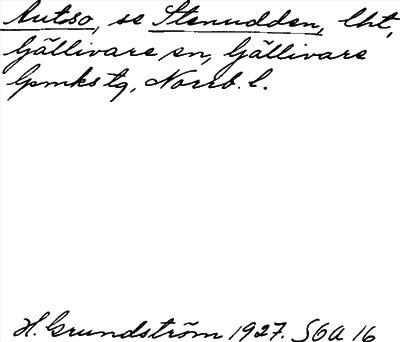 Autso, se Stenudden, lht,
Gällivare sn, Gällivare
lpmks tg, Norrb. l.
H. Grundström 1927. SOA 16